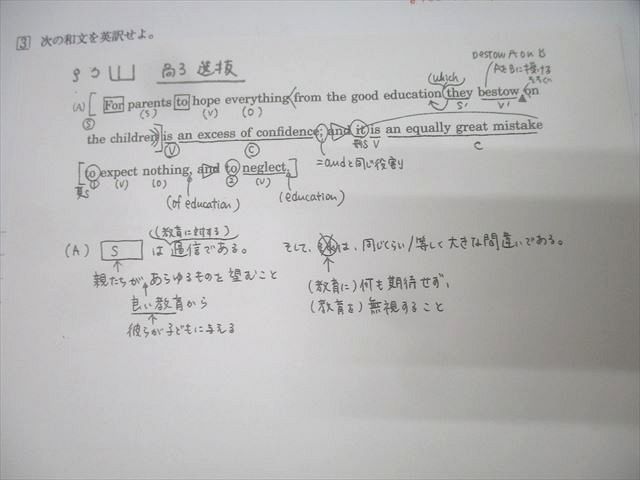 3 次の和文を英訳せよ。
高3 選抜
bestow A on B
AをBに授ける
which
(A) For parents to hope everything from the good education they bestow on
S (S) (V) (O) S' V'
the children is an excess of confidence; and it is an equally great mistake
V C 形S V C
to expect nothing, and to neglect.
真S ① (V) (O) ② (V)
= andと同じ役割
(of education) (education)
(教育に対する)
(A) S は過信である。 そして、それは、同じくらい/等しく大きな間違いである。
親たちがあらゆるものを望むこと
(教育に)何も期待せず、
良い教育から
(教育を)無視すること
彼らが子どもに与える